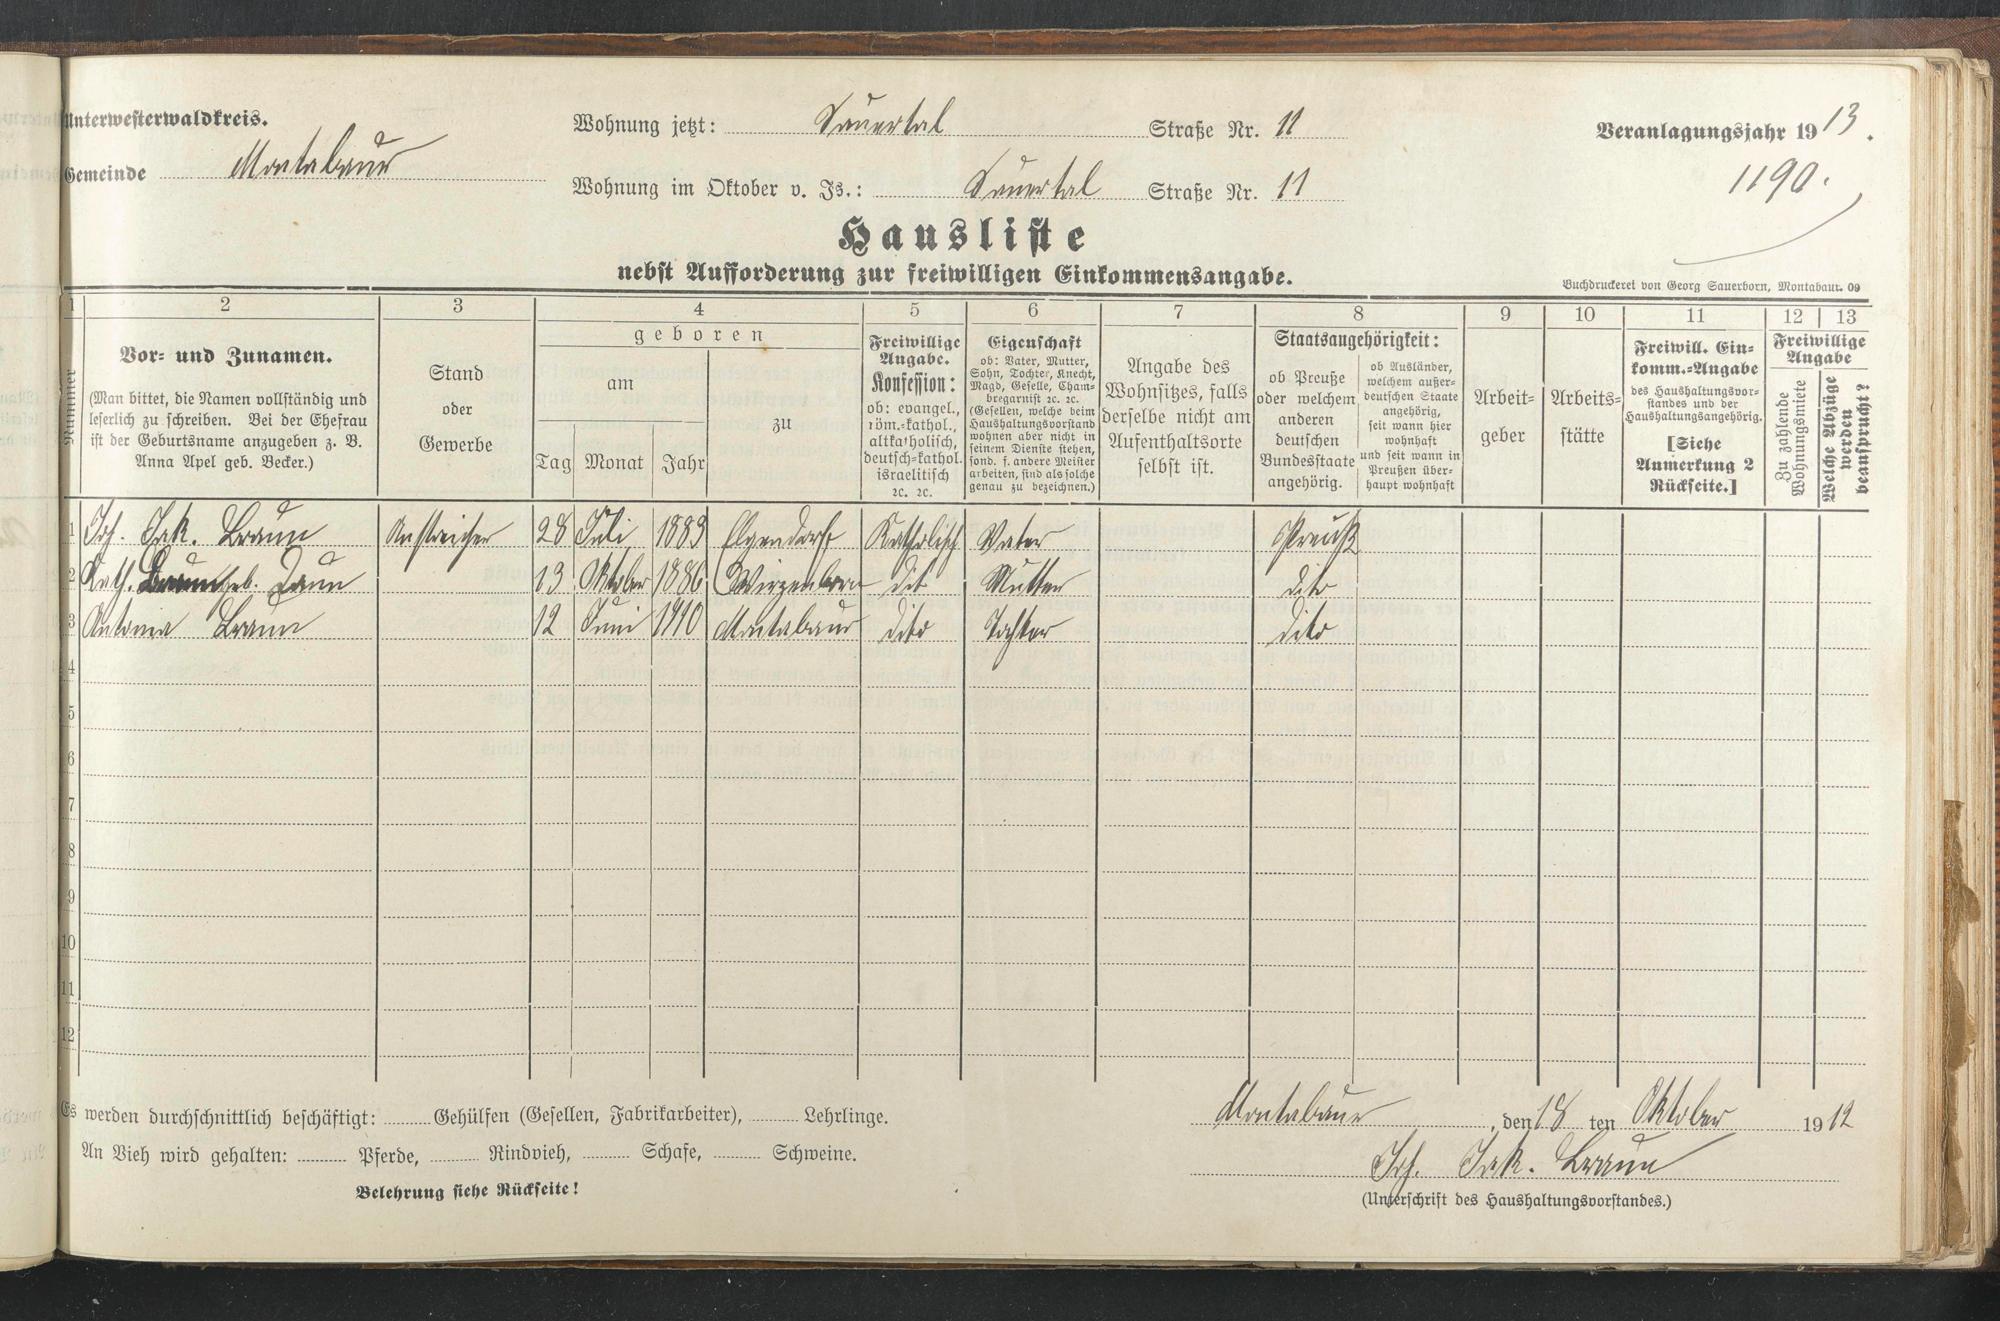 Unterwesterwaldkreis.
Gemeinde Montabaur
Wohnung jetzt: Sauertal Straße Nr. 11
Wohnung im Oktober v. Js.: Sauertal Straße Nr. 11
Veranlagungsjahr 1913.
1190.
Hausliste
nebst Aufforderung zur freiwilligen Einkommensangabe.
Buchdruckerei von Georg Sauerborn, Montabaur. 09
1 2 3 4 5 6 7 8 9 10 11 12 13
Nummer
Vor- und Zunamen.
(Man bittet, die Namen vollständig und
leserlich zu schreiben. Bei der Ehefrau
ist der Geburtsname anzugeben z. B.
Anna Apel geb. Becker.)
Stand
oder
Gewerbe
geboren
am
Tag Monat Jahr
zu
Freiwillige
Angabe.
Konfession:
ob: evangel.,
röm.-kathol.,
altkatholisch,
deutsch-kathol.
israelitisch
2c. 2c.
Eigenschaft
ob: Vater, Mutter,
Sohn, Tochter, Knecht,
Magd, Geselle, Cham-
bregarnist 2c. 2c.
(Gesellen, welche beim
Haushaltungsvorstand
wohnen aber nicht in
seinem Dienste stehen,
sond. f. andere Meister
arbeiten, sind als solche
genau zu bezeichnen.)
Angabe des
Wohnsitzes, falls
derselbe nicht am
Aufenthaltsorte
selbst ist.
Staatsangehörigkeit:
ob Preuße
oder welchem
anderen
deutschen
Bundesstaate
angehörig.
ob Ausländer,
welchem außer-
deutschen Staate
angehörig,
seit wann hier
wohnhaft
und seit wann in
Preußen über-
haupt wohnhaft
Arbeit-
geber
Arbeits-
stätte
Freiwill. Ein-
komm.-Angabe
des Haushaltungsvor-
standes und der
Haushaltungsangehörig.
[Siehe
Anmerkung 2
Rückseite.]
Freiwillige
Angabe
Zu zahlende
Wohnungsmiete
Welche Abzüge
werden
beansprucht?
1 Joh. Jak. Braun Anstreicher 28 Juli 1883 Elgendorf Katholisch Vater Preuß
2 Kath. Braun geb. Daun 13 Oktober 1886 Wirzenborn dito Mutter dito
3 Antonia Braun 12 Juni 1910 Montabaur dito Tochter dito
4
5
6
7
8
9
10
11
12
Es werden durchschnittlich beschäftigt: Gehülfen (Gesellen, Fabrikarbeiter), Lehrlinge.
An Vieh wird gehalten: Pferde, Rindvieh, Schafe, Schweine.
Belehrung siehe Rückseite!
Montabaur, den 18 ten Oktober 1912
Joh. Jak. Braun
(Unterschrift des Haushaltungsvorstandes.)